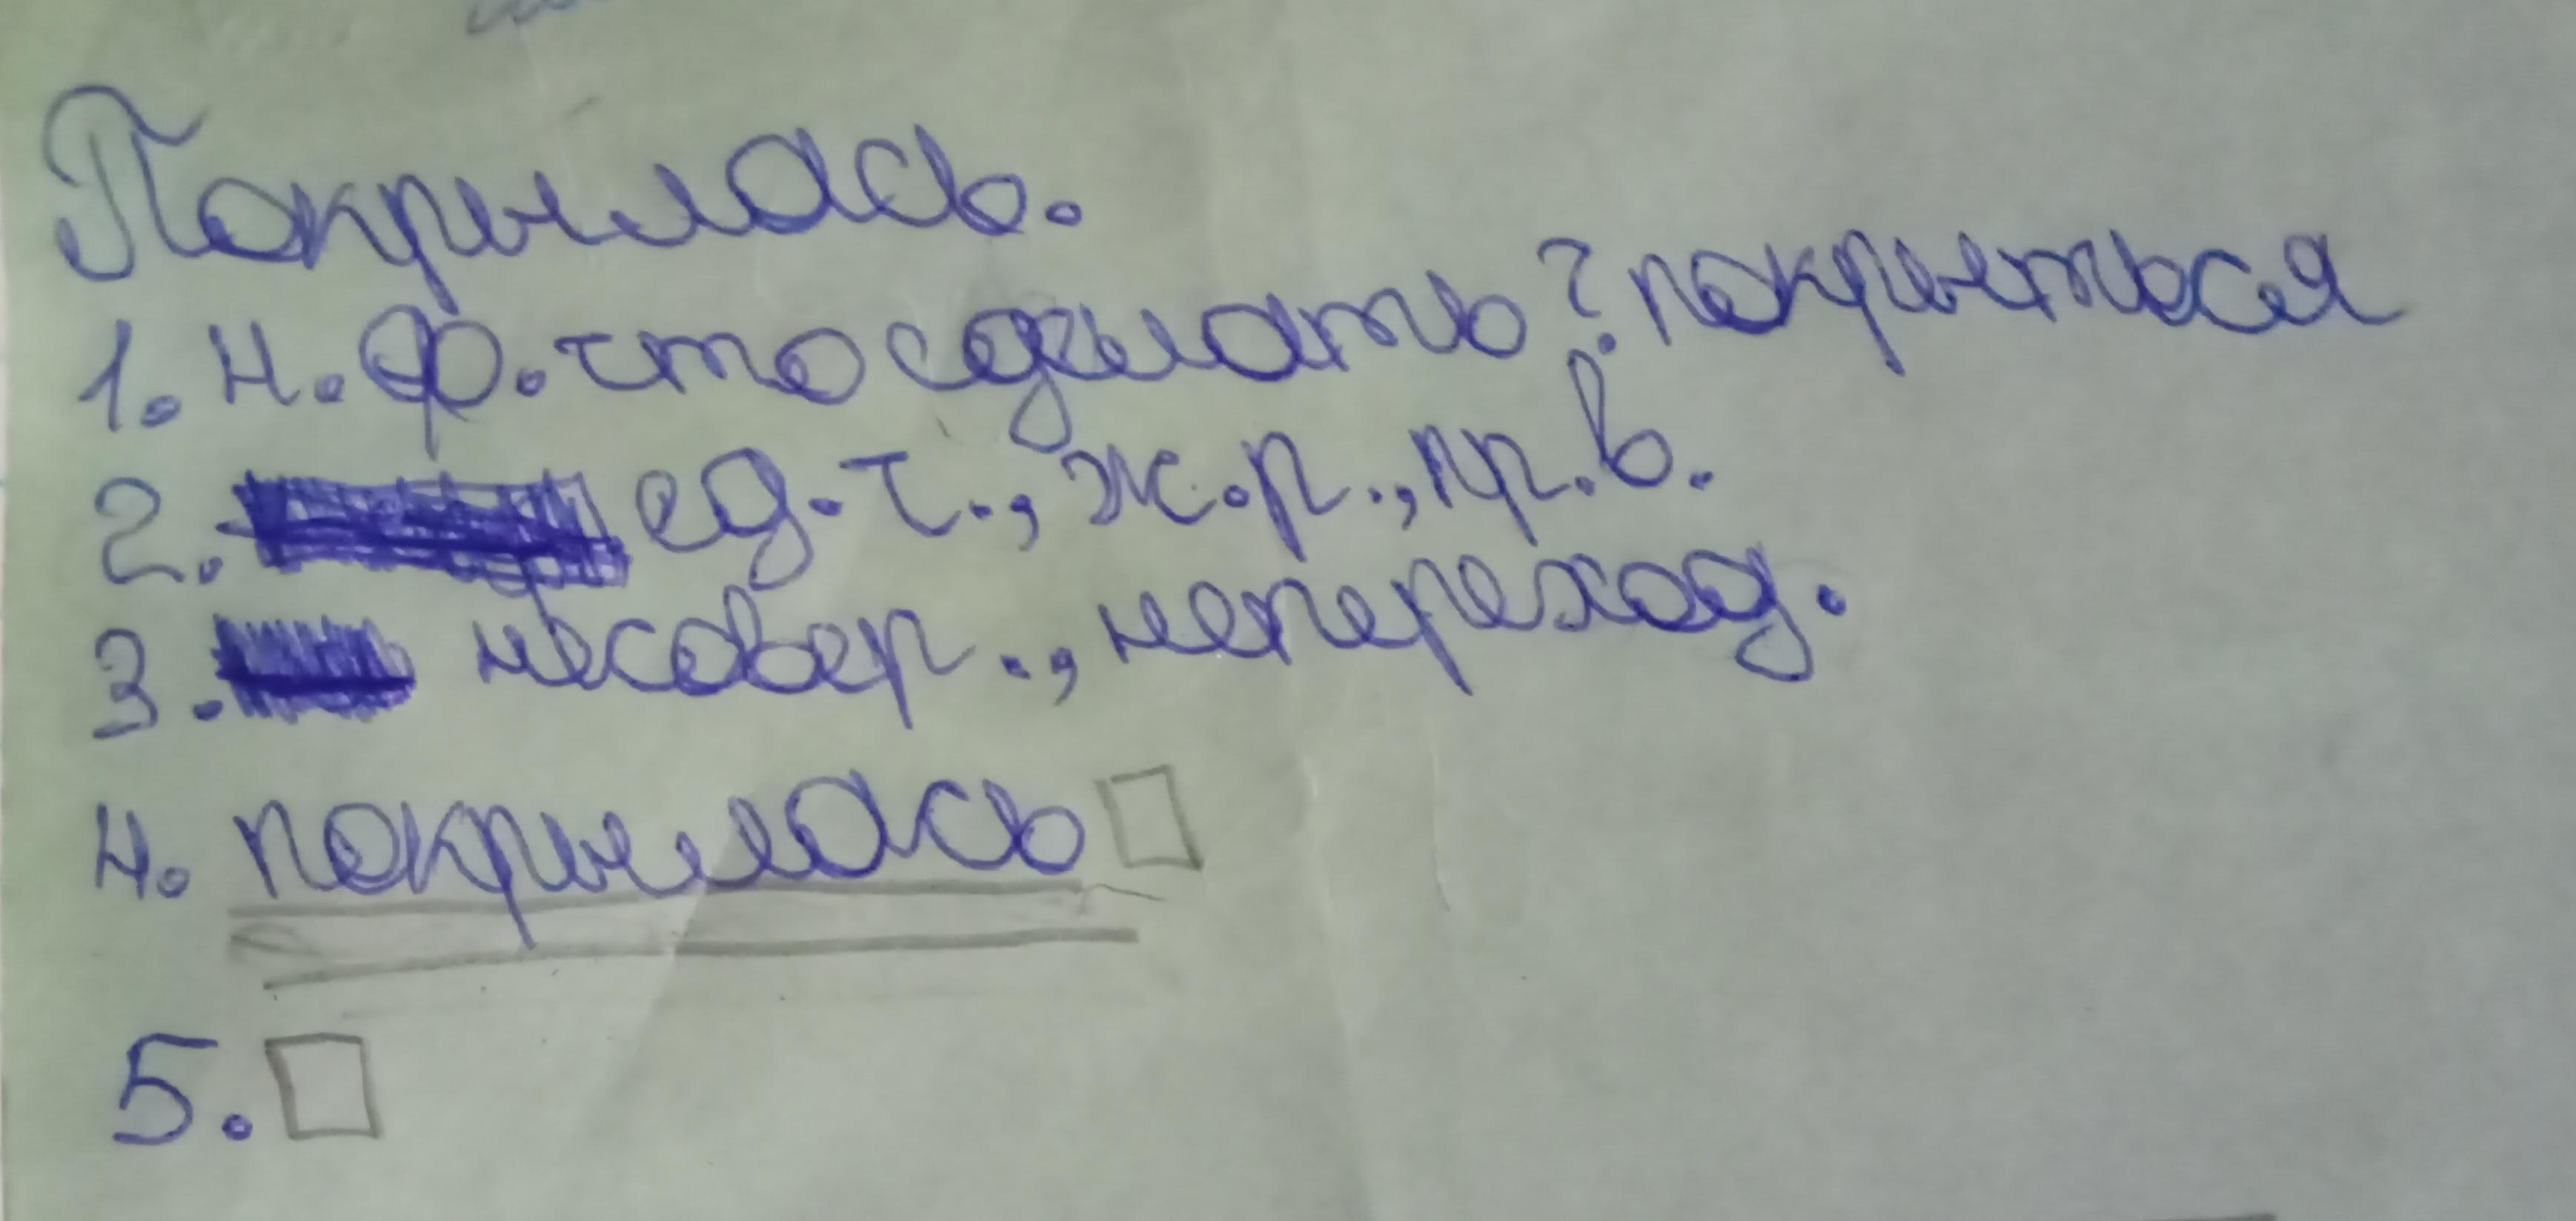 Покрылась.
1. н. ф. что сделать? покрыться
2. ед. ч., ж.р., пр.в.
3. несовер., непереход.
4. покрылась
5.